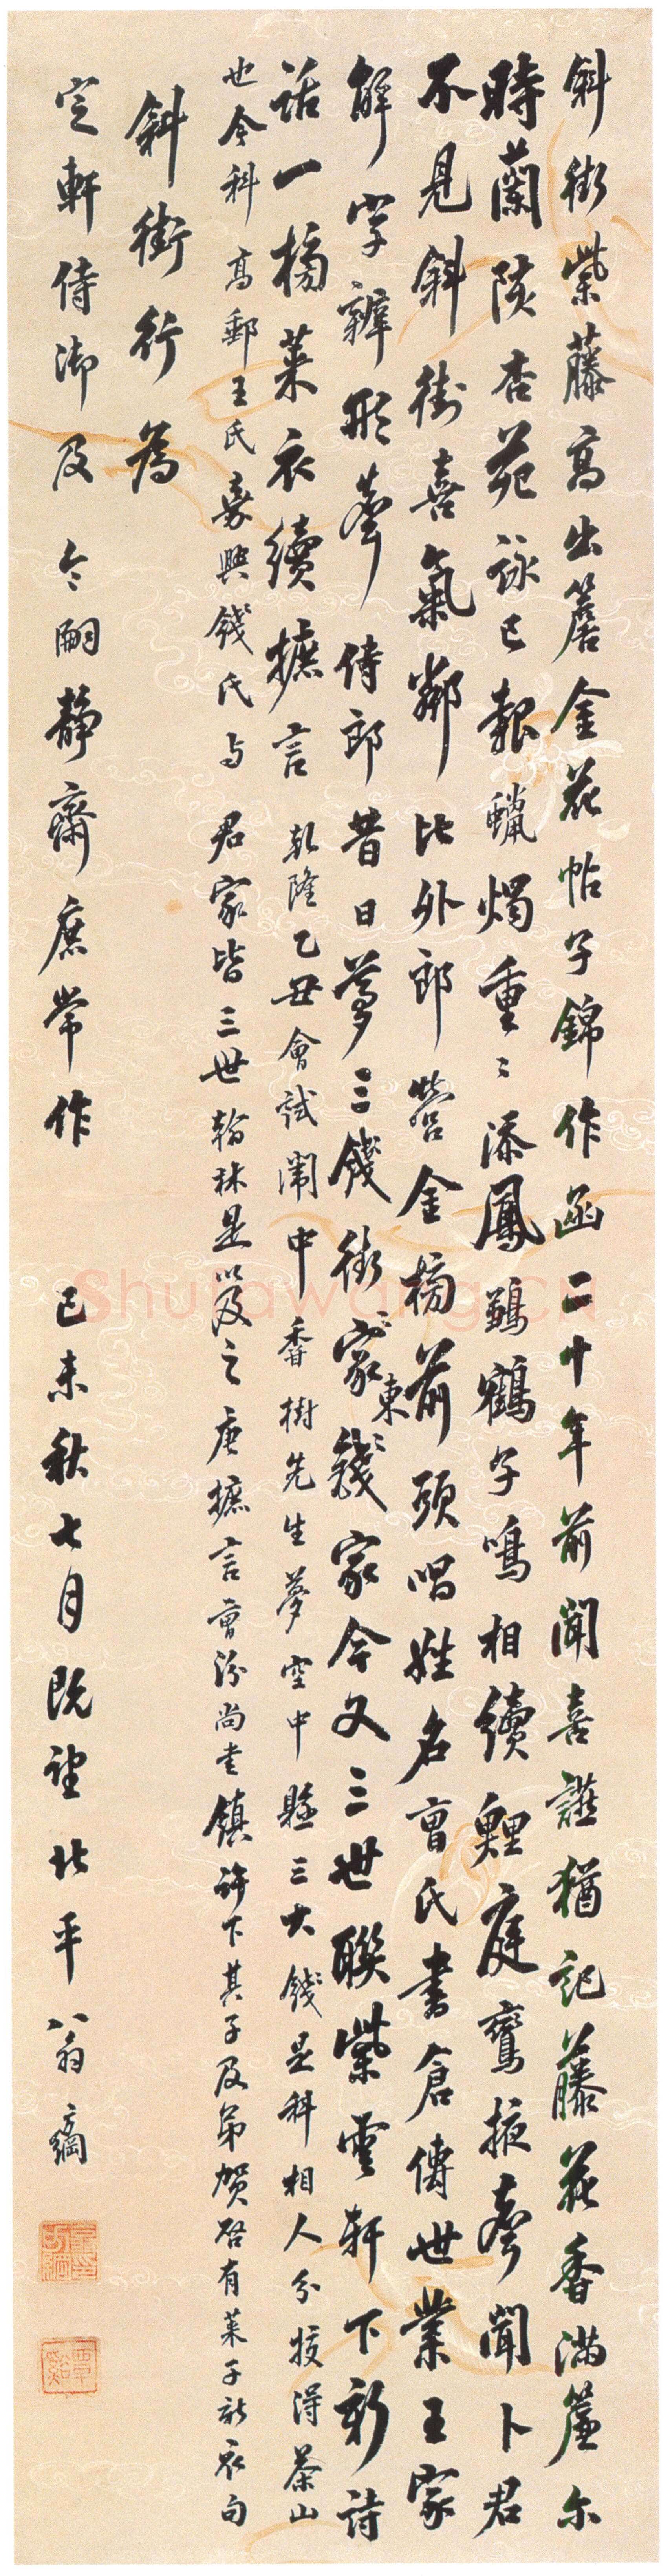 斜街紫藤高出簷金花帖子錦作函二十年前聞喜讌猶記藤花香滿簾尒
時蘭陔杏苑詠已報蠟燭重〻添鳳鷄鶴子鳴相續鯉庭鸞掖聲聞卜君
不見斜街喜氣鄰比外郎營金榜前頭唱姓名曹氏書倉傳世業王家
解字辨形聲侍郎昔日夢三錢街東錢家〻今又三世聯紫雲軒下新詩
話一榜萊衣續摭言乾隆乙丑會試闈中香樹先生夢空中懸三大錢是科相人分校得茶山
也今科高郵王氏嘉興錢氏与君家皆三世翰林是以及之唐摭言曹汾尚書鎮許下其子及弟賀啓有萊子新衣句
斜街行為
定軒侍御及令嗣靜齋庶常作己未秋七月既望北平翁方綱
Shufawang.CN